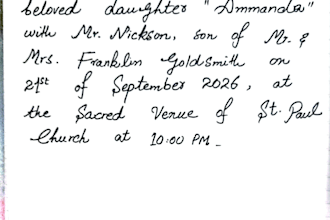 beloved daughter "Ammanda"
with Mr. Nickson, son of Mr. &
Mrs. Franklin Goldsmith on
21st of September 2026, at
the Sacred Venue of St. Paul
Church at 10:00 PM.